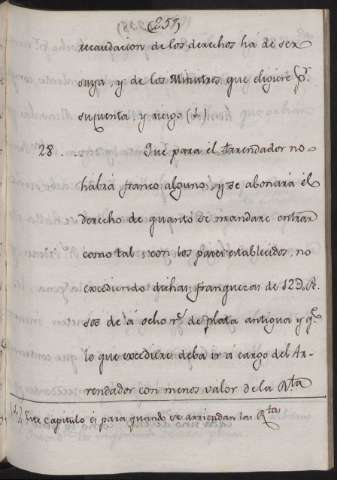 (255)
recaudacion de los derechos ha de ser
suya, y de los Ministros que eligiere pr.
su cuenta y riesgo (L).
28. Que para el Arrendador no
habrá franco alguno, y se abonará el
derecho de quanto se mandare entrar
como tal, con los pactos establecidos, no
excediendo dichas franquezas de 12D
sos de á ocho rs. de plata antigua y qe.
lo que excediere deba ir á cargo del Ar-
rendador con menos valor de la Rta
(L) Este Capitulo és para quando se arriendan las Rtas